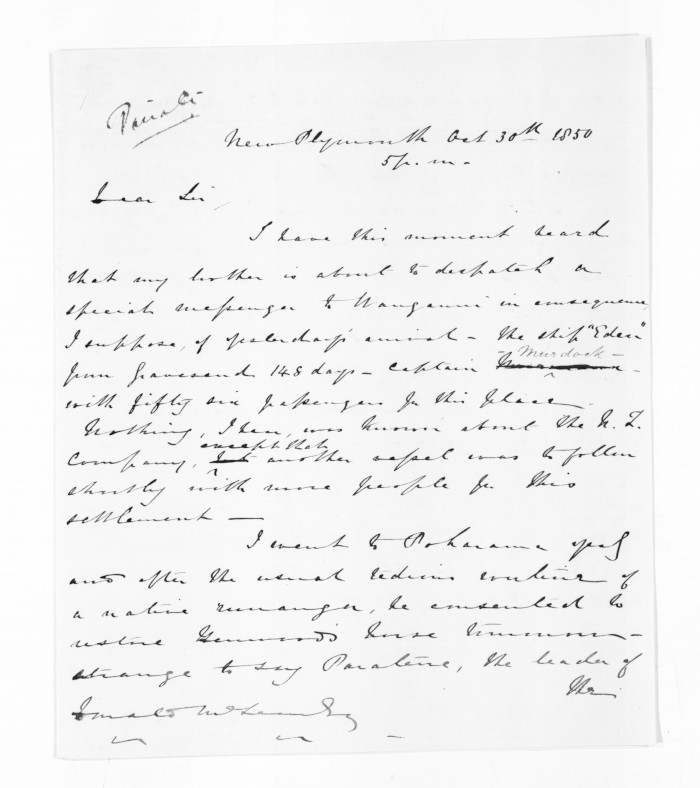 Private
New Plymouth Oct 30th 1850
5 p.m.
Dear Sir,
I have this moment heard
that my brother is about to despatch a
special messenger to Wanganui in consequence,
I suppose, of yesterday's arrival - the ship "Eden"
from Gravesend 148 days - Captain - Murdock -
with fifty six passengers for this place.
Nothing, I hear, was known about the N. Z.
Company, except that another vessel was to follow
shortly with more people for this
settlement —
I went to Poharama
and after the usual tedious routine of
a native runanga, he consented to
restore horse tomorrow -
strange to say Paratene, the leader of
the
Donald McLean Esq